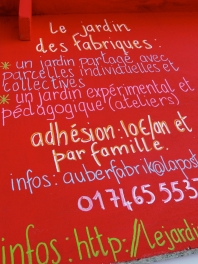 Le jardin
des fabriques :
* un jardin partagé avec
parcelles individuelles et
collectives
* un jardin expérimental et
pédagogique (ateliers)
adhésion : 10€/an et
par famille.
infos : auberfabrik@lapost
01 74 65 553
infos : http://lejardi